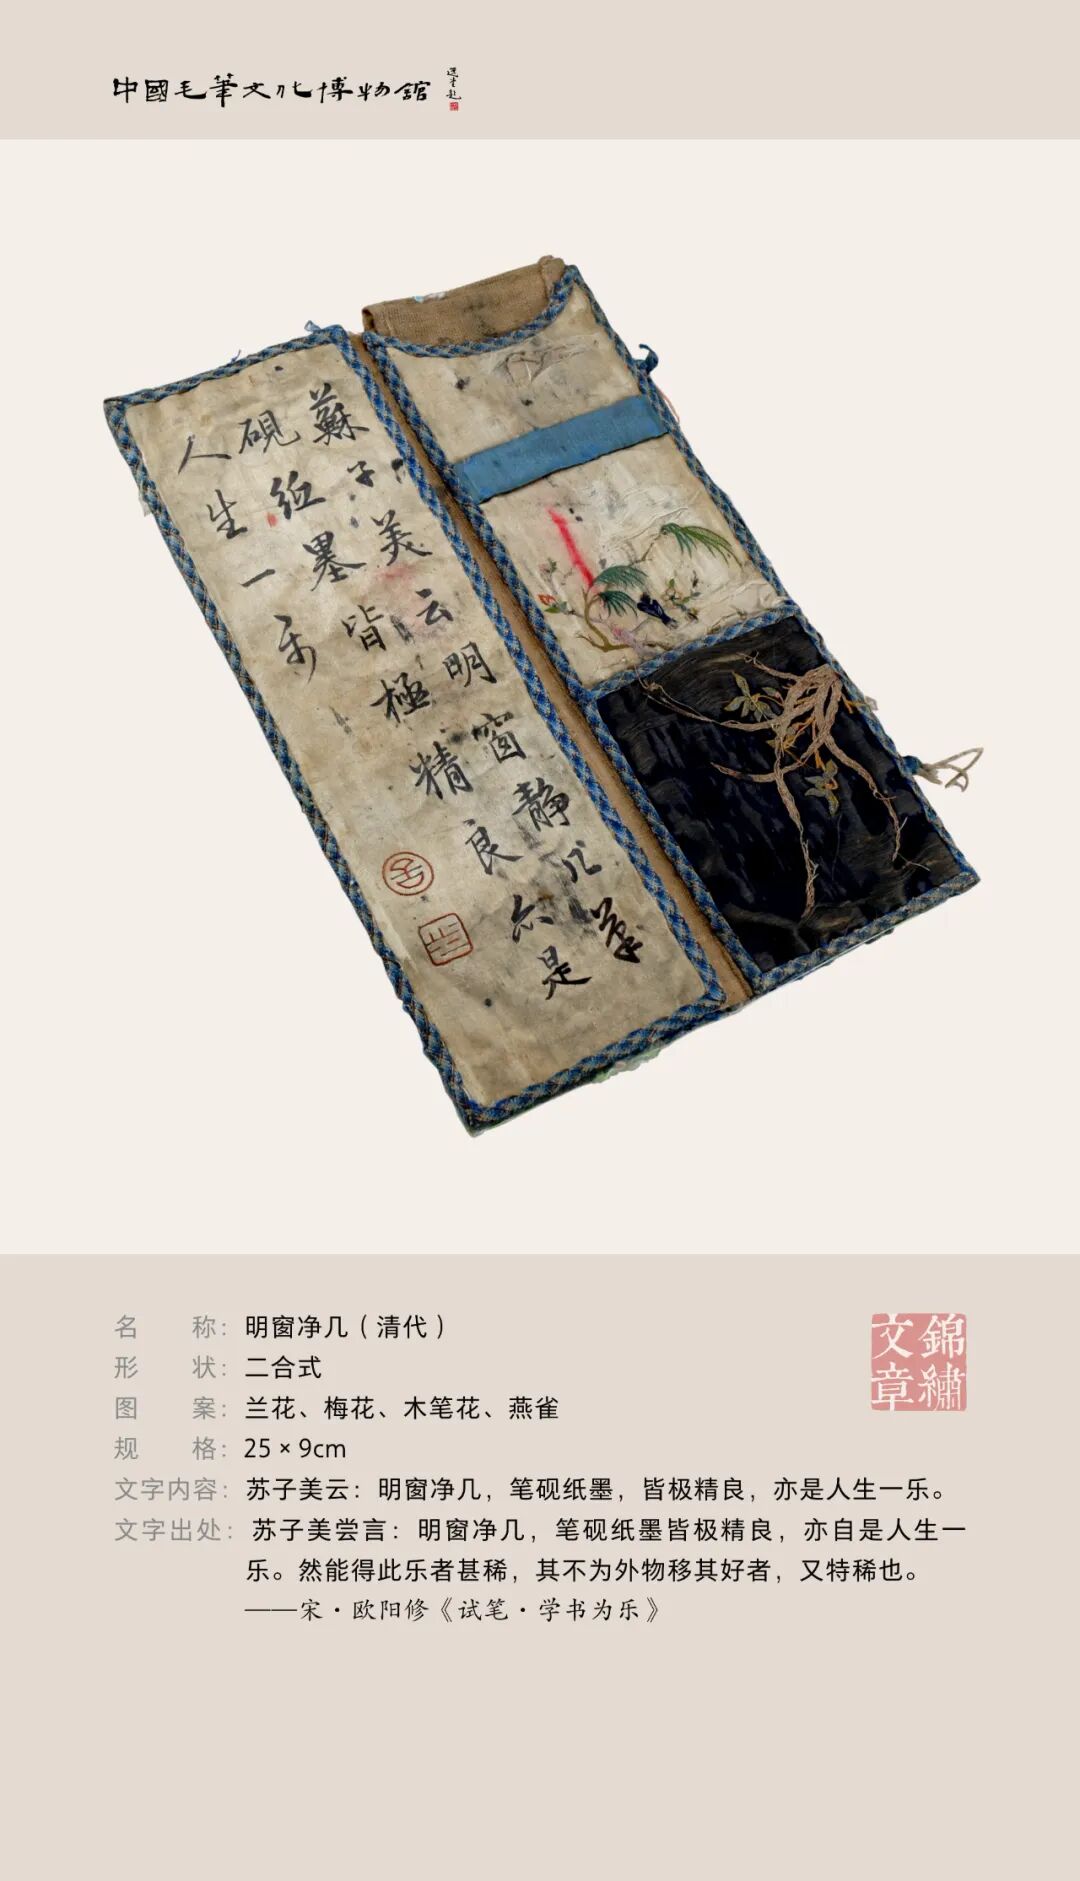 中國毛筆文化博物館
選堂題
蘇子美云明窗静几筆
硯紙墨皆極精良亦是
人生一乐
名 称：明窗净几（清代）
形 状：二合式
图 案：兰花、梅花、木笔花、燕雀
规 格：25×9cm
文字内容：苏子美云：明窗净几，笔砚纸墨，皆极精良，亦是人生一乐。
文字出处：苏子美尝言：明窗净几，笔砚纸墨皆极精良，亦自是人生一
乐。然能得此乐者甚稀，其不为外物移其好者，又特稀也。
——宋·欧阳修《试笔·学书为乐》
錦繡文章